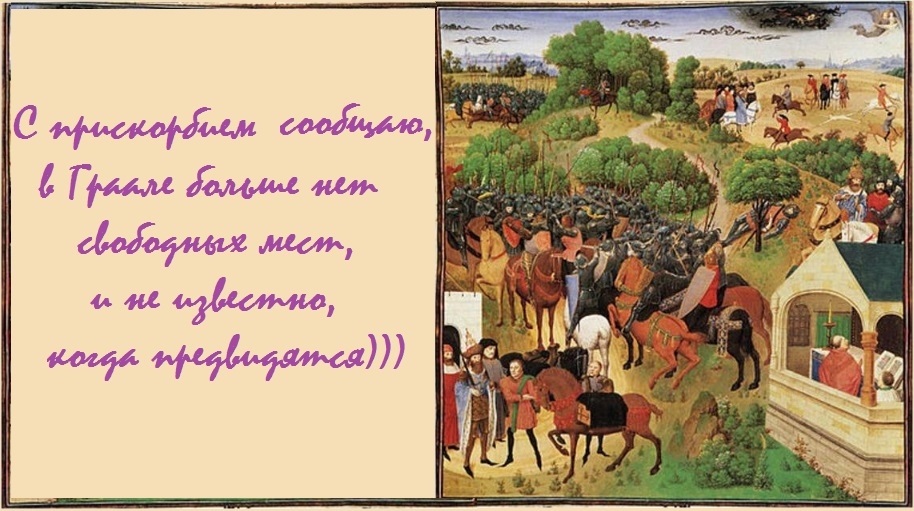 С прискорбием сообщаю,
в Граале больше нет
свободных мест,
и не известно,
когда предвидятся)))